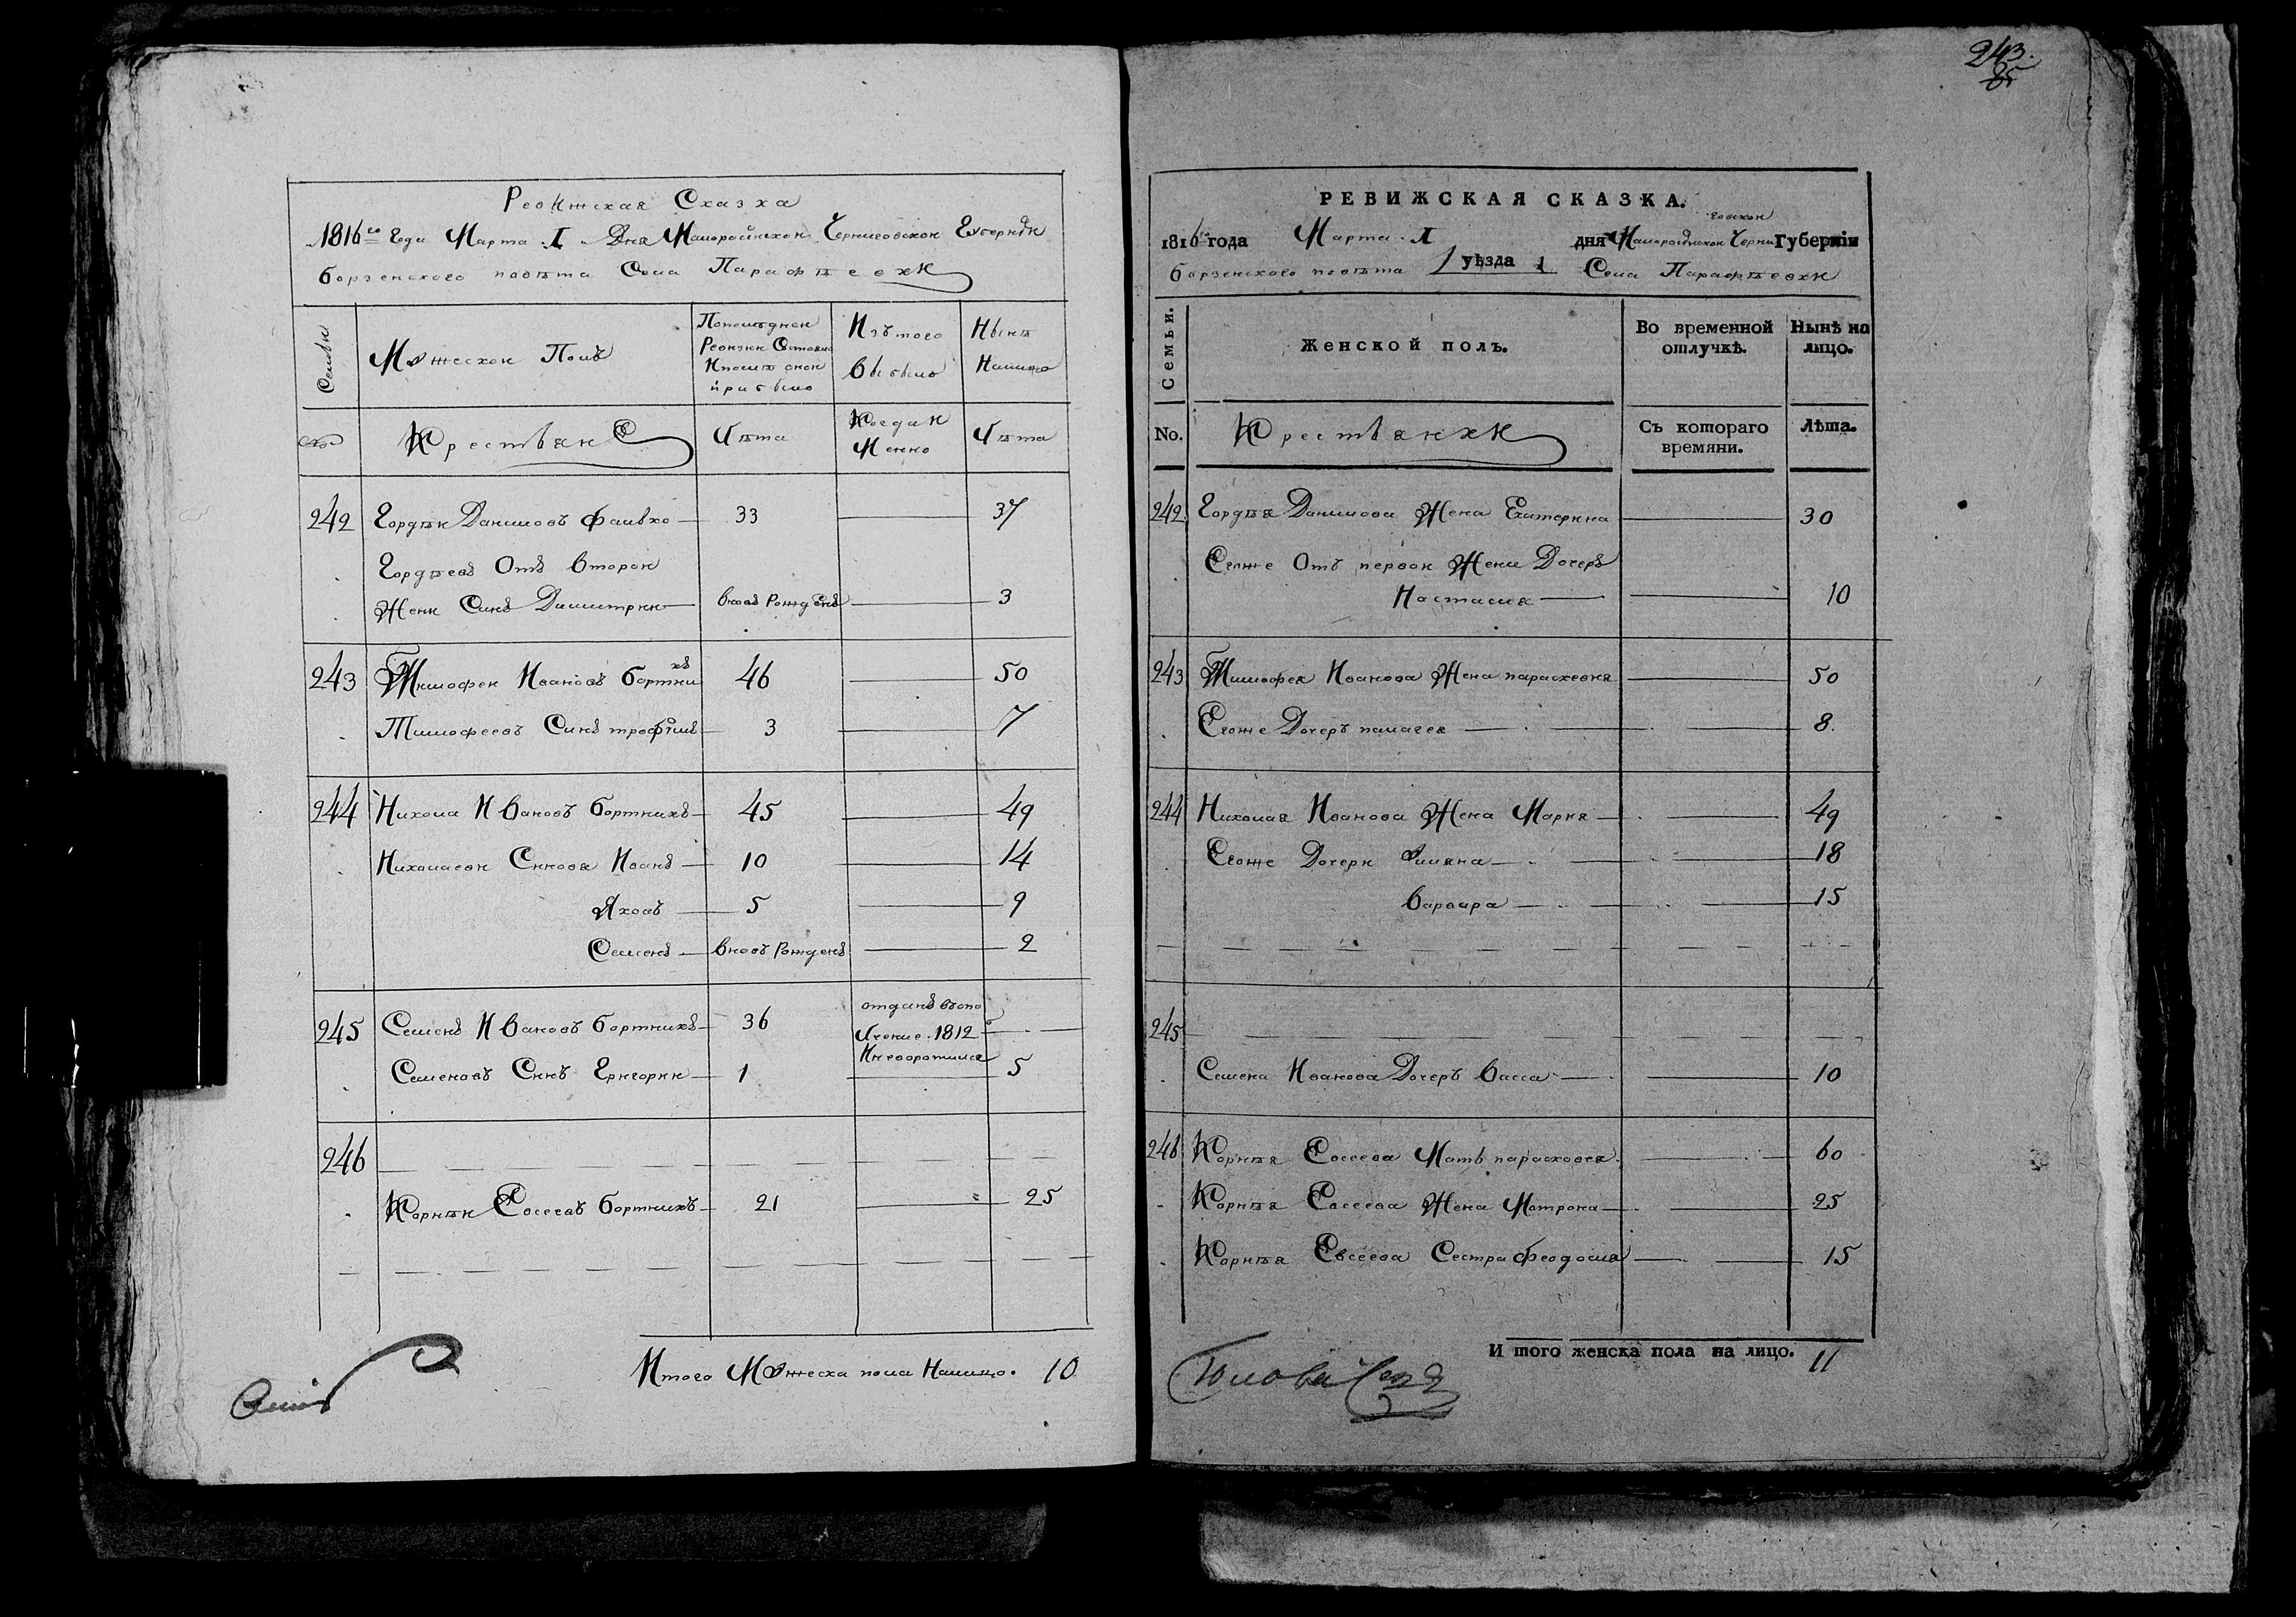 Ревижская Сказка
1816го Года Марта 1 Дня Малоросійской Черниговской Губерніи
борзенского повѣта Села Парафѣевки
Семьи
Мужеской Полъ
Попослѣдней Ревизіи Состояло Ипослѣ оной прибыло
Изътого выбыло
Нынѣ Налицо
№
Крестьяне
Лѣта
Когда И Менно
Лѣта
242 Гордѣй Даниловъ 33 37
Гордѣевъ Отъ второй
Жени Синъ Димитрий вновъ Рожденъ 3
243 Тимофей Ивановъ бортникъ 46 50
Тимофеевъ Синъ трофимъ 3 7
244 Никола Ивановъ бортникъ 45 49
Николаеви Синова Иванъ 10 14
Яковъ 5 9
Семенъ вновъ Рожденъ 2
245 Семенъ Ивановъ бортникъ 36 отданъ въопо
лчение 1812
Иневоротился
Семеновъ Синъ Григорий 1 5
246
Корнѣй Евсеевъ бортникъ 21 25
Итого Мужеска пола Налицо. 10
243.
85
РЕВИЖСКАЯ СКАЗКА.
1816го года Марта 1 дня Малоросійской Черниговской Губерніи
борзенского повѣта уѣзда Села Парафѣевки
Семьи.
Женской полъ.
Во временной отлучкѣ.
Нынѣ на лицо.
No.
Крестьянки
Съ котораго времяни.
Лѣта.
242 Гордѣя Данилова Жена Екатерина 30
Егоже Отъ первой Жени Дочеръ
Настасия 10
243 Тимофея Иванова Жена параскевия 50
Егоже Дочеръ палагея 8.
244 Николая Иванова Жена Мария 49
Егоже Дочери Уляна 18
варвара 15
245
Семена Иванова Дочеръ васса 10
246 Корнѣя Евсеева Мать парасковея 60
Корнѣя Евсеева Жена Мотрона 25
Корнѣя Евсеева Сестра Феодосия 15
И того женска пола на лицо. 11